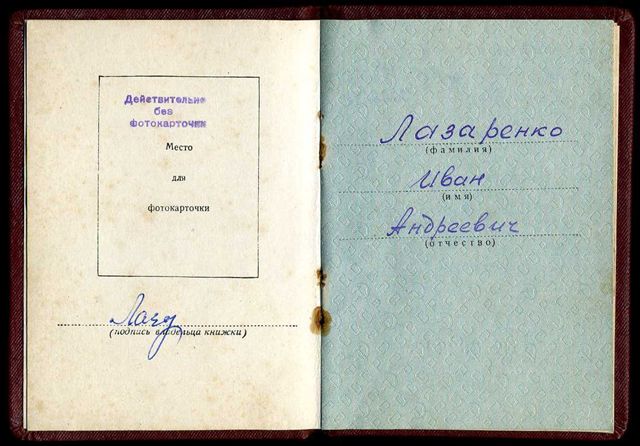 Действительно
без
фотокарточки
Место
для
фотокарточки
(подпись владельца книжки)
Лазаренко
(фамилия)
Иван
(имя)
Андреевич
(отчество)